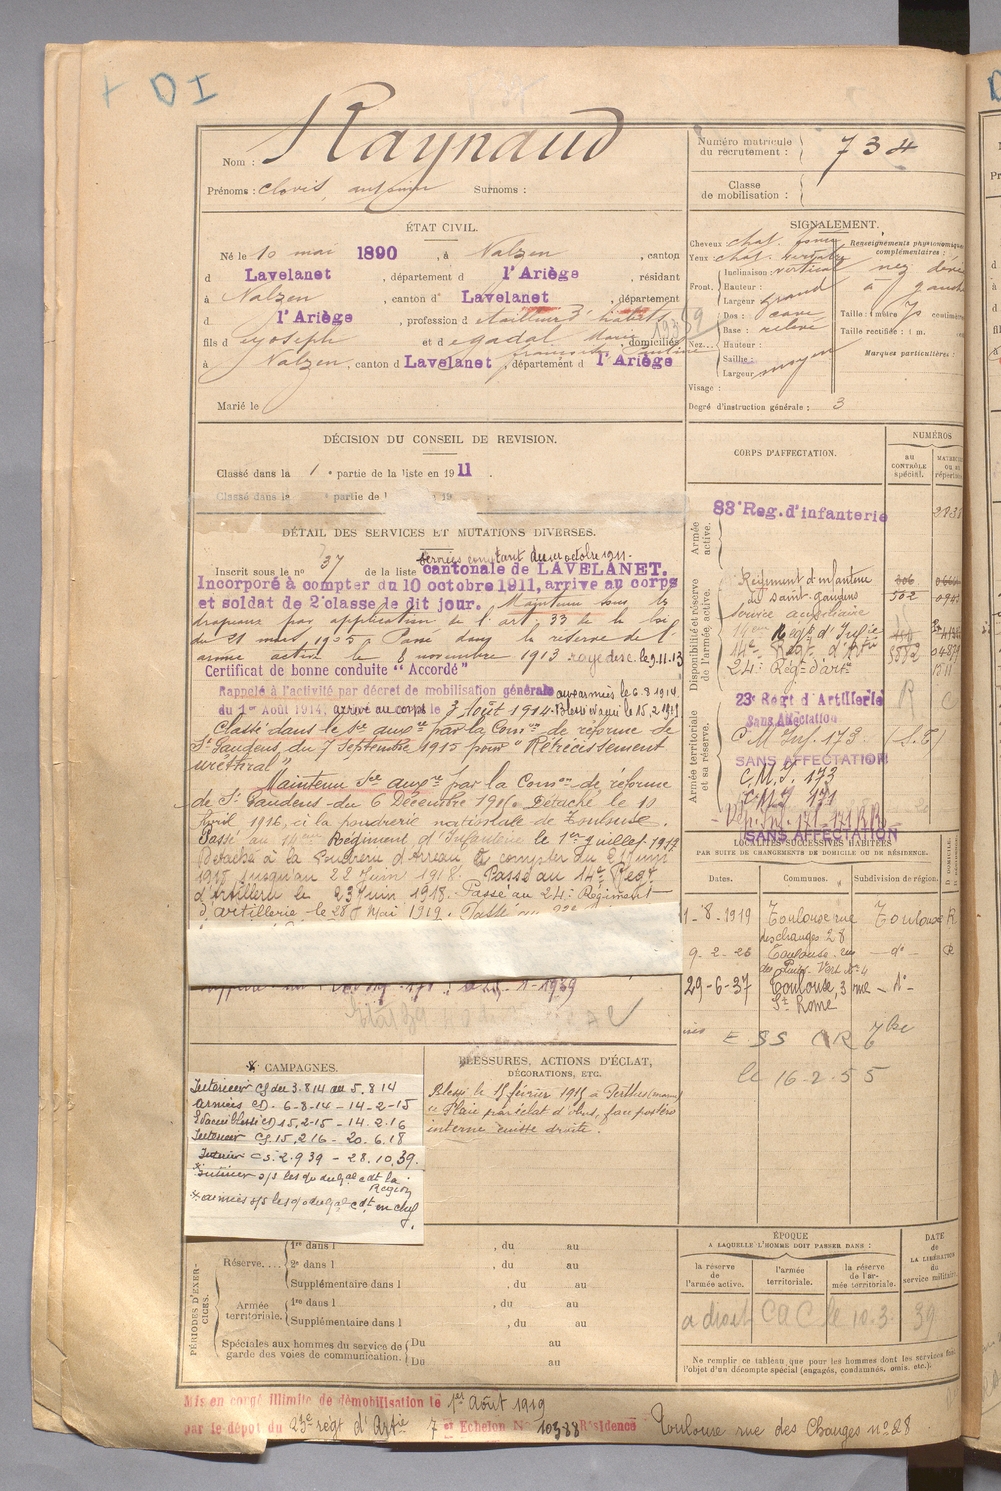 DI
Nom : Raynaud
Prénoms : Clovis, antoine Surnoms :
Numéro matricule du recrutement : 734
Classe de mobilisation :
ÉTAT CIVIL.
Né le 10 mai 1890, à Nalzen, canton
d Lavelanet, département d l'Ariège, résidant
à Nalzen, canton d' Lavelanet, département
d l'Ariège, profession d tailleur d'habits
fils d Joseph et d domiciliés
à Nalzen, canton d Lavelanet, département d l'Ariège
Marié le
SIGNALEMENT.
Cheveux chat. foncé
Yeux chat.
Renseignements physionomiques complémentaires :
Front. Inclinaison : vertical
Hauteur :
Largeur grand
nez dévié
à gauche
Nez. Dos : cave
Base : relevé
Hauteur :
Saillie :
Largeur moyen
Taille : 1 mètre 70 centimètres
Taille rectifiée : 1 m.
Marques particulières :
Visage :
Degré d'instruction générale : 3
DÉCISION DU CONSEIL DE REVISION.
Classé dans la 1e partie de la liste en 1911.
Classé dans la partie de l 19
DÉTAIL DES SERVICES ET MUTATIONS DIVERSES.
Inscrit sous le n° 37 de la liste cantonale de LAVELANET.
Services comptant du 10 octobre 1911.
Incorporé à compter du 10 octobre 1911, arrivé au corps
et soldat de 2e classe le dit jour. Maintenu sous les
drapeaux par application de l'art. 33 de la loi
du 21 mars 1905. Passé dans la réserve de l'
armée active le 8 novembre 1913 rayé des c. le 9.11.13
Certificat de bonne conduite "Accordé"
Rappelé à l'activité par décret de mobilisation générale aux armées le 6.8.1914
du 1er Août 1914, arrivé au corps le 3 Août 1914. Blessé évacué le 15.2.1915
Classé dans le Sce auxre par la Comon de réforme de
St Gaudens, du 7 Septembre 1915 pour "Rétrécissement
uréthral"
Maintenu Sce auxre par la Comon de réforme
de St Gaudens du 6 Décembre 1915. Détaché le 10
Avril 1916, à la poudrerie nationale de Toulouse.
Passé au 14eme Régiment d'Infanterie le 1er Juillet 1917
Détaché à la à compter du
jusqu'au 22 Juin 1918. Passé au 14e Regt
d'artillerie le 23 Juin 1918. Passé au 24e Régiment
d'artillerie le 28 Mai 1919. Passé au
1939
CORPS D'AFFECTATION.
NUMÉROS
au CONTRÔLE spécial.
MATRICULE ou au répertoire
Armée active.
83e Reg. d'infanterie
Disponibilité et réserve de l'armée active.
Régiment d'infanterie
de Saint-Gaudens 502
service auxiliaire
14eme Regt d'Infie
14e Regt d'Artie
24e Régt d'artie
R C
Armée territoriale et sa réserve.
23e Regt d'Artillerie
Sans Affectation
C M Inf. 173 (S.T)
SANS AFFECTATION
C.M.I. 173
C.M.I. 171
SANS AFFECTATION
LOCALITÉS SUCCESSIVES HABITÉES
PAR SUITE DE CHANGEMENTS DE DOMICILE OU DE RÉSIDENCE.
Dates. Communes. Subdivision de région.
1-8-1919 Toulouse rue des changes 28 Toulouse R
9-2-26 Toulouse rue du Puits Vert N° 4 - do - R
29-6-37 Toulouse, 3 rue St Rome - do -
le 16-2-55
CAMPAGNES.
Intérieur CS du 3.8.14 au 5.8.14
Armées CD - 6-8-14 - 14-2-15
15.2-15 - 14.2.16
Intérieur CS. 15.2.16 - 20.6.18
Intérieur CS. 2.9.39 - 28.10.39.
BLESSURES, ACTIONS D'ÉCLAT, DÉCORATIONS, ETC.
Blessé le 15 février 1915 à Perthes (Marne)
Plaie par éclat d'obus, face postéro
interne cuisse droite.
PÉRIODES D'EXERCICES.
Réserve.... 1re dans l , du au
2e dans l , du au
Supplémentaire dans l , du au
Armée territoriale. 1re dans l , du au
Supplémentaire dans l , du au
Spéciales aux hommes du service de garde des voies de communication. Du au
Du au
ÉPOQUE
A LAQUELLE L'HOMME DOIT PASSER DANS :
la réserve de l'armée active.
l'armée territoriale.
la réserve de l'armée territoriale.
DATE de LA LIBÉRATION du service militaire.
a droit C a C le 10.3.39
Ne remplir ce tableau que pour les hommes dont les services font
l'objet d'un décompte spécial (engagés, condamnés, omis, etc.).
Mis en congé illimité de démobilisation le 1er Août 1919
par le dépôt du 23e régt d'Artie 7 e Echelon N° 10388 Résidence Toulouse rue des Changes n° 28